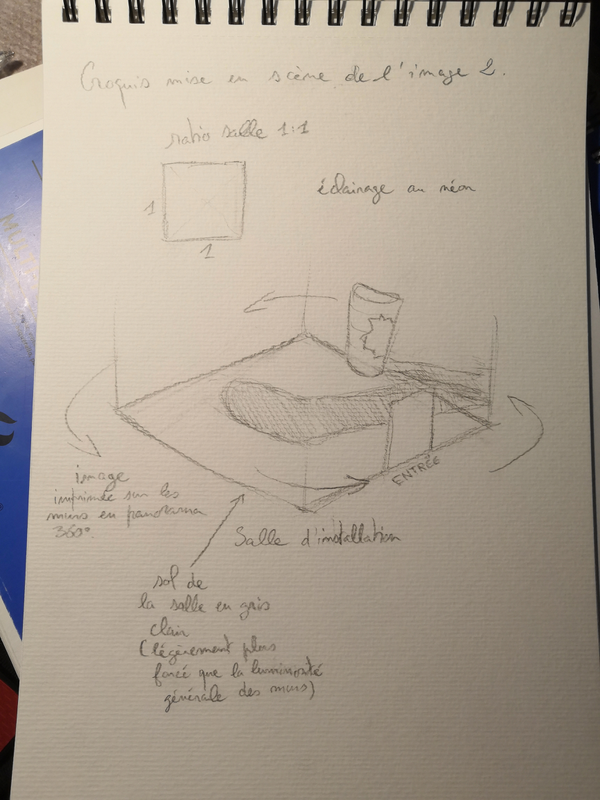 Croquis mise en scène de l'image 2.
ratio salle 1:1
1
1
éclairage au néon
ENTRÉE
image
imprimée sur les
murs en panorama
360°.
Salle d'installation
sol de
la salle en gris
clair
(légèrement plus
foncé que la luminosité
générale des murs)